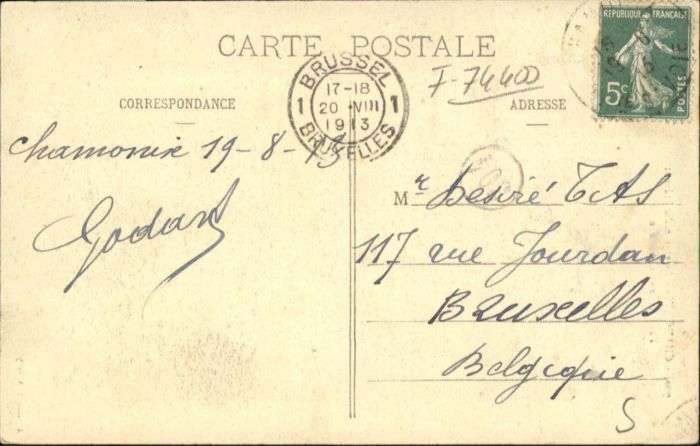 CARTE POSTALE
CORRESPONDANCE
ADRESSE
F-74400
RÉPUBLIQUE FRANÇAISE
5c
POSTES
BRUSSEL
1 17-18 1
20 VIII
1913
BRUXELLES
Chamonix 19-8-13
Godard
Mr Desiré TAS
117 rue Jourdan
Bruxelles
Belgique
S